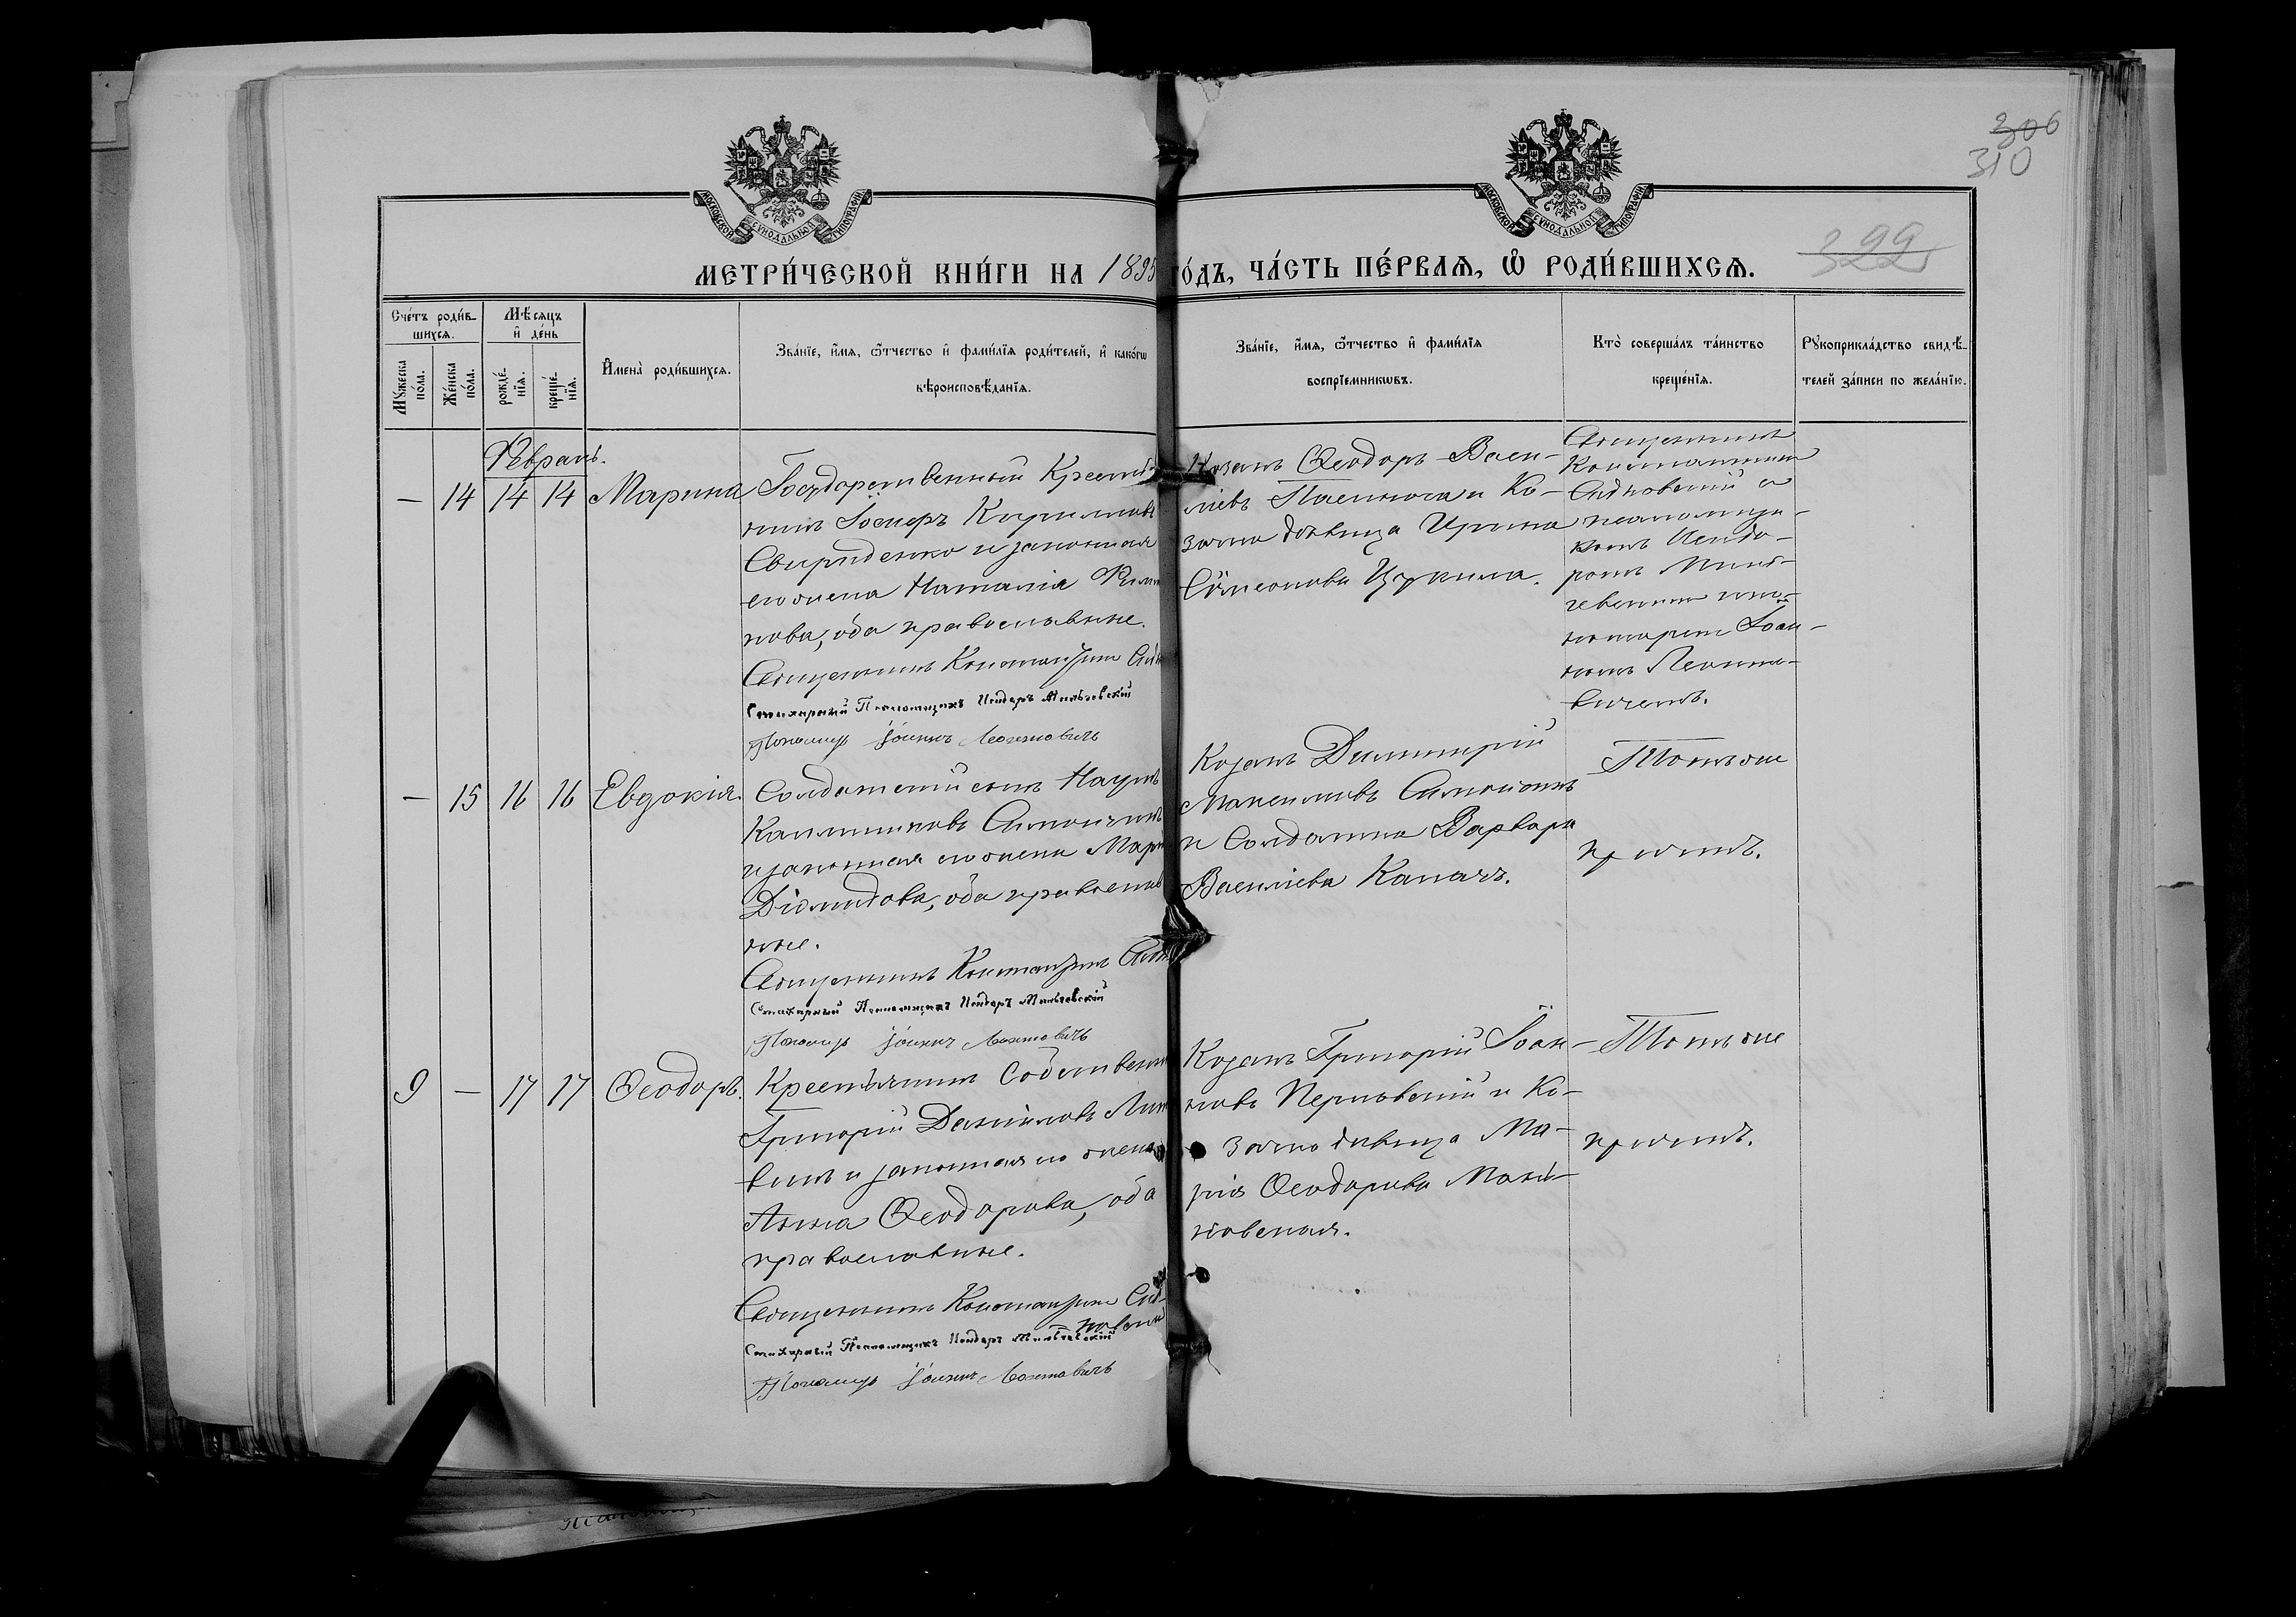 306
310
МОСКОВСКОЙ СУНОДАЛЬНОЙ ТИПОГРАФІИ
МОСКОВСКОЙ СУНОДАЛЬНОЙ ТИПОГРАФІИ
322
МЕТРИ́ЧЕСКОЙ КНИ́ГИ НА 1895
ГО́ДЪ, ЧА́СТЬ ПЕ́РВАѦ, Ѽ РОДИ́ВШИХСѦ.
Сче́тъ роди́в-
шихсѧ.
Мꙋжеска по́ла.
Же́нска по́ла.
Мѣсѧцъ
и҆ де́нь
рожде́-
нїѧ.
креще́-
нїѧ.
И҆мена̀ роди́вшихсѧ.
Зва́нїе, и҆́мѧ, ѻ҆́тчество и҆ фами́лїѧ роди́телей, и҆ како́гѡ
вѣроисповѣ́данїѧ.
Зва́нїе, и҆́мѧ, ѻ҆́тчество и҆ фами́лїѧ
воспрїе́мникѡвъ.
Кто̀ соверша́лъ та́инство
креще́нїѧ.
Рꙋкоприкла́дство свидѣ́-
телей за́писи по жела́нїю.
Февраль.
— 14 14 14 Марина
Государственный Крестья-
нинъ Іосифъ Кириловъ
Свириденко и законная
его жена Наталія
нова, оба православные.
Священникъ Константинъ
Стихарный Псаломщикъ Исидоръ Мильчевскій
Пономарь Іоаннъ Леонтовичъ
Козакъ Ѳеодоръ Васи-
ліевъ и Ко-
зачка дѣвица Ирина
Симеонова Цуркина.
Священникъ
Константинъ
Сидковскій с
псаломщи-
комъ Исидо-
ромъ Миль-
чевскимъ и по-
номаремъ Іоан-
номъ Леонто-
вичемъ.
— 15 16 16 Евдокія.
Солдатскій сынъ Наумъ
Каллиниковъ Симончикъ
и законная его жена Марія
Діомидова, оба православ
ные.
Священникъ Константинъ
Стихарный Псаломщикъ Исидоръ Мильчевскій
Пономарь Іоаннъ Леонтовичъ
Козакъ Димитрій
Максимовъ
и Солдатка Варвара
Василіева Капачъ.
Тотъ же
причтъ.
9 — 17 17 Ѳеодоръ.
Крестьянинъ Собственникъ
Григорій Даніиловъ
и законная его жена
Анна Ѳеодорова, оба
православные.
Священникъ Константинъ Сид-
ковскій
Стихарный Псаломщикъ Исидоръ Мильчевскій
Пономарь Іоаннъ Леонтовичъ
Козакъ Григорій Іоан-
новъ и Ко-
зачка дѣвица Ма-
рія Ѳеодорова
новская.
Тотъ же
причтъ.